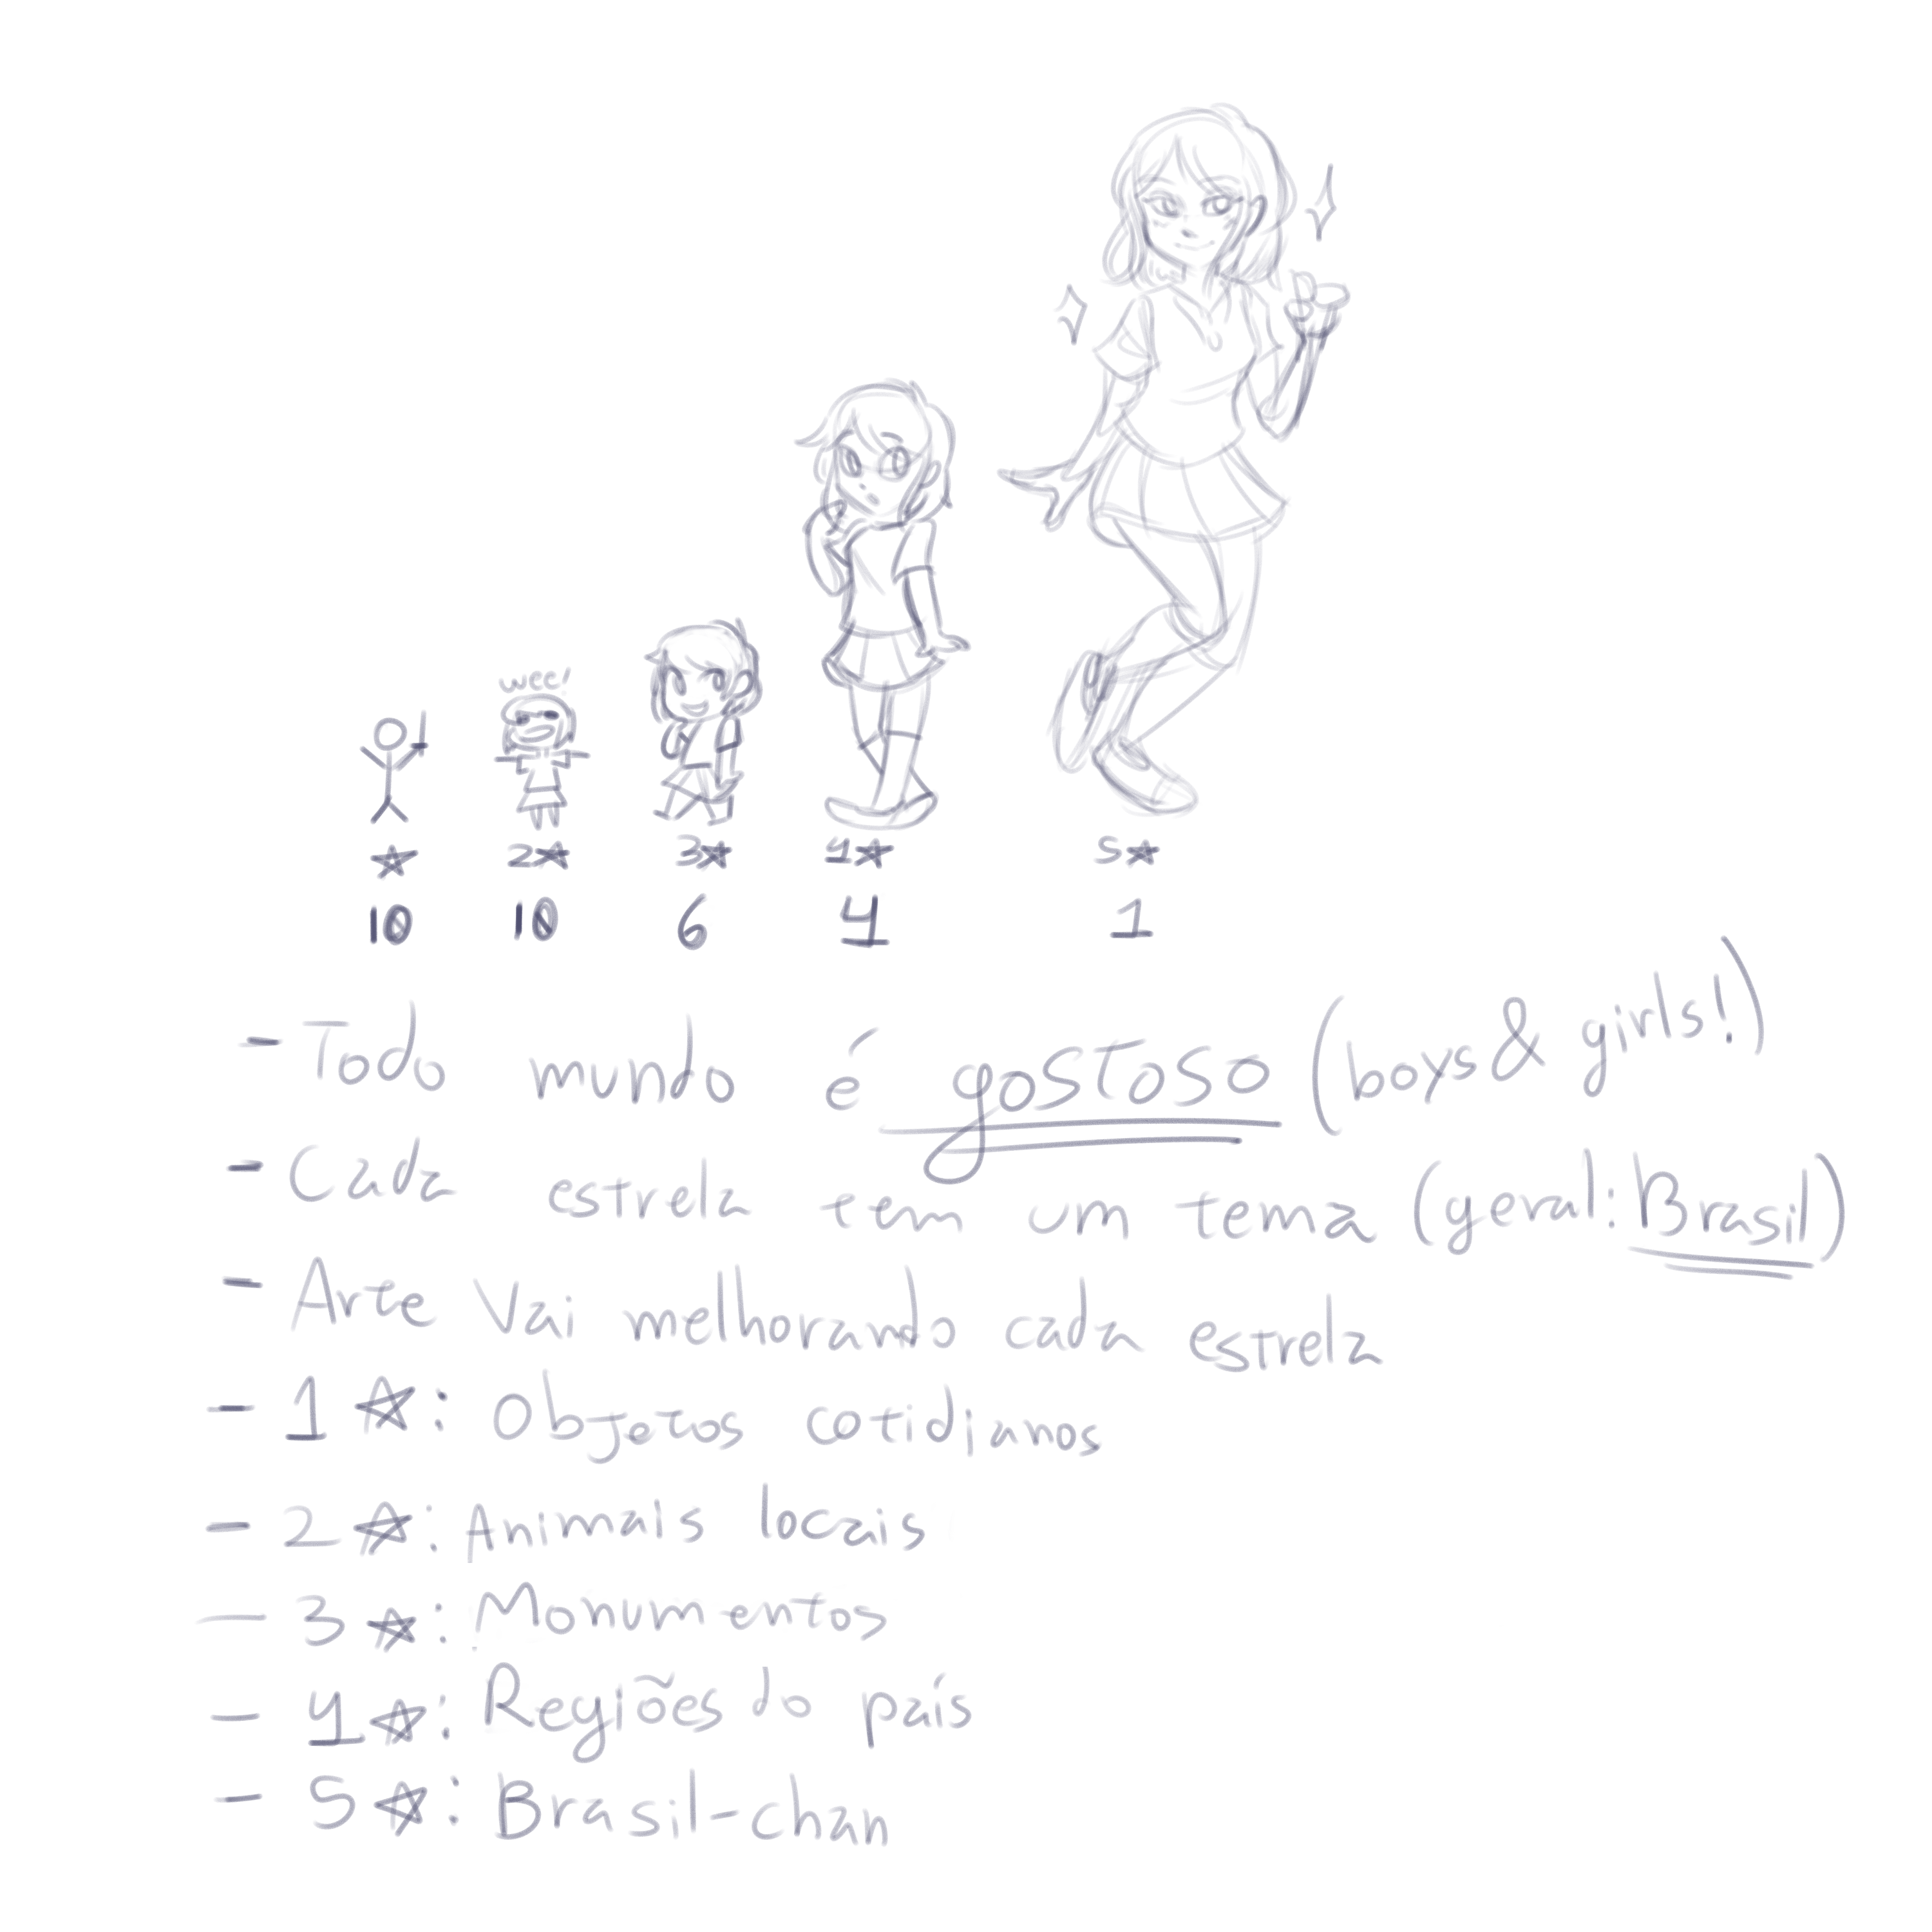 wee!
★ 2★ 3★ 4★ 5★
10 10 6 4 1
- Todo mundo é gostoso (boys & girls!)
- Cada estrela tem um tema (geral: Brasil)
- Arte vai melhorando cada estrela
- 1★: Objetos cotidianos
- 2★: Animais locais
- 3★: Monumentos
- 4★: Regiões do país
- 5★: Brasil-chan